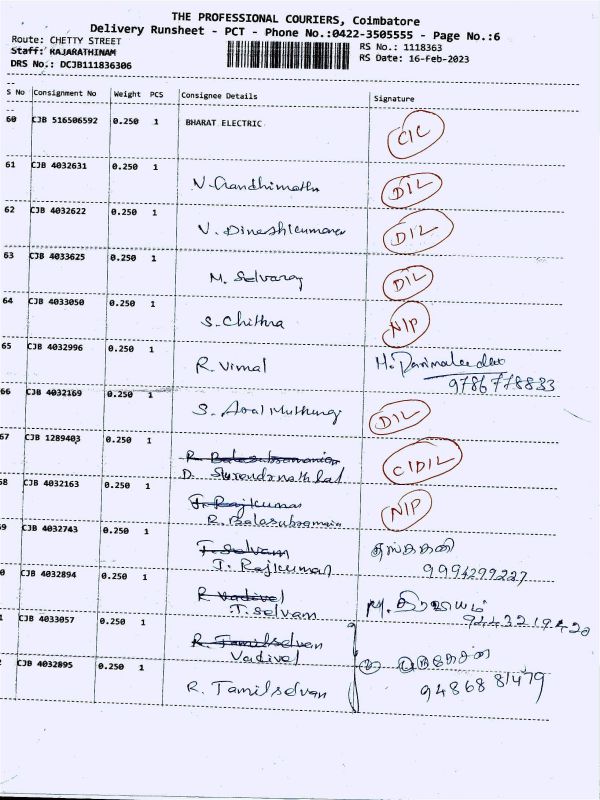 THE PROFESSIONAL COURIERS, Coimbatore
Delivery Runsheet - PCT - Phone No.:0422-3505555 - Page No.:6
Route: CHETTY STREET
RS No.: 1118363
Staff: RAJARATHINAM
RS Date: 16-Feb-2023
DRS No.: DCJB111836306
S No Consignment No Weight PCS Consignee Details Signature
60 CJB 516506592 0.250 1 BHARAT ELECTRIC
C/L
61 CJB 4032631 0.250 1
N. Gandhimathi D/L
62 CJB 4032622 0.250 1
V. Dineshkumar D/L
63 CJB 4033625 0.250 1
M. Selvaraj D/L
64 CJB 4033050 0.250 1
S. Chithra N/P
65 CJB 4032996 0.250 1
R. Vimal
9786778833
66 CJB 4032169 0.250 1
S. D/L
67 CJB 1289403 0.250 1
R. Balasubramanian
D. C/D/L
68 CJB 4032163 0.250 1
T. Rajkumar N/P
R. Balasubramanian
69 CJB 4032743 0.250 1
T. Selvam
T. Rajkumar 9994299227
0 CJB 4032894 0.250 1
R. Vadivel
T. Selvam
1 CJB 4033057 0.250 1
R. Tamilselvan
Vadivel
2 CJB 4032895 0.250 1
R. Tamilselvan 9486881479